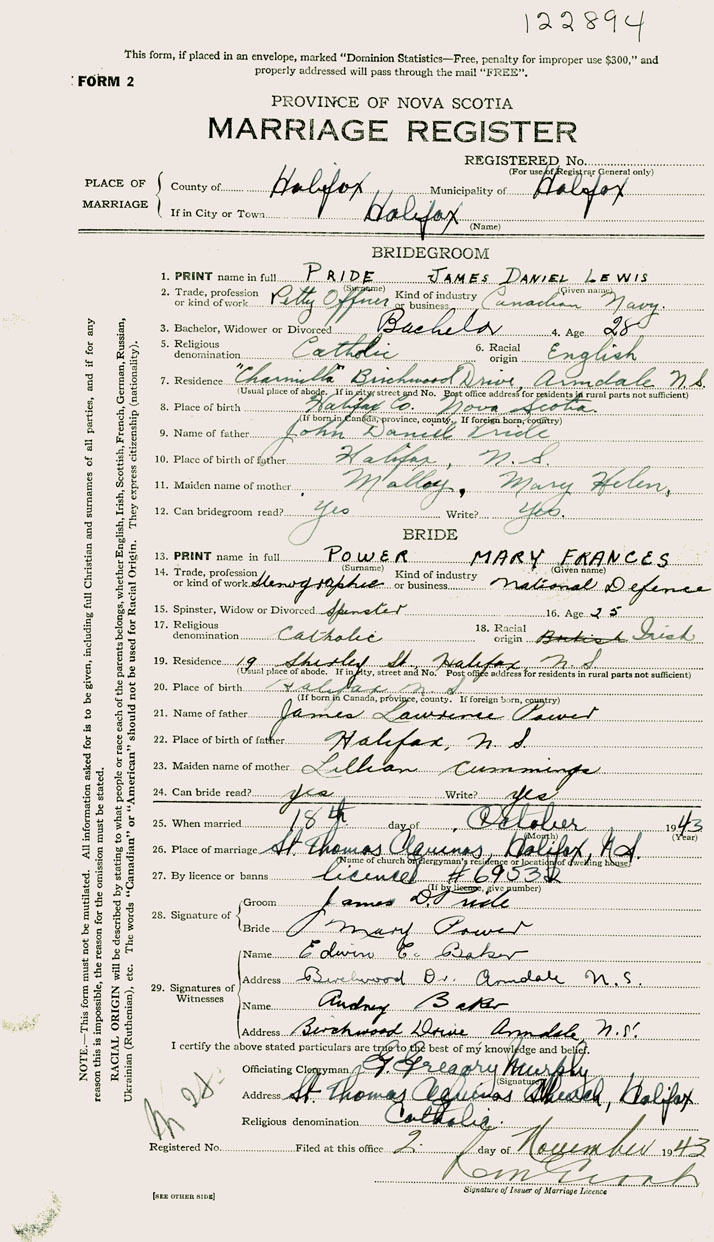 122894
This form, if placed in an envelope, marked "Dominion Statistics—Free, penalty for improper use $300," and
properly addressed will pass through the mail "FREE".
FORM 2
PROVINCE OF NOVA SCOTIA
MARRIAGE REGISTER
REGISTERED No.
(For use of Registrar General only)
PLACE OF MARRIAGE
County of Halifax Municipality of Halifax
If in City or Town Halifax
(Name)
BRIDEGROOM
1. PRINT name in full PRIDE JAMES DANIEL LEWIS
(Surname) (Given name)
2. Trade, profession or kind of work Petty Officer Kind of industry or business Canadian Navy.
3. Bachelor, Widower or Divorced Bachelor 4. Age 28
5. Religious denomination Catholic 6. Racial origin English
7. Residence Birchwood Drive, Armdale N.S.
(Usual place of abode. If in city, street and No. Post office address for residents in rural parts not sufficient)
8. Place of birth Halifax Co. Nova Scotia.
(If born in Canada, province, county. If foreign born, country)
9. Name of father John Daniel Pride
10. Place of birth of father Halifax, N.S.
11. Maiden name of mother Malloy, Mary Helen,
12. Can bridegroom read? Yes Write? Yes.
BRIDE
13. PRINT name in full POWER MARY FRANCES
(Surname) (Given name)
14. Trade, profession or kind of work Stenographer Kind of industry or business National Defence
15. Spinster, Widow or Divorced Spinster 16. Age 25
17. Religious denomination Catholic 18. Racial origin British Irish
19. Residence 19 Shirley St. Halifax, N.S
(Usual place of abode. If in city, street and No. Post office address for residents in rural parts not sufficient)
20. Place of birth Halifax N.S
(If born in Canada, province, county. If foreign born, country)
21. Name of father James Lawrence Power
22. Place of birth of father Halifax, N.S.
23. Maiden name of mother Lillian Cummings
24. Can bride read? yes Write? yes
25. When married 18th day of October 1943
(Month) (Year)
26. Place of marriage St Thomas Aquinas, Halifax, N.S.
(Name of church or clergyman's residence or location of dwelling house)
27. By licence or banns license #69532
(If by license, give number)
28. Signature of
Groom James D. Pride
Bride Mary Power
29. Signatures of Witnesses
Name Edwin E. Baker
Address Birchwood Dr. Armdale N.S.
Name Audrey Baker
Address Birchwood Drive Armdale N.S.
I certify the above stated particulars are true to the best of my knowledge and belief.
Officiating Clergyman Gregory Murphy
(Signature)
Address St Thomas Aquinas Church, Halifax
Religious denomination Catholic.
Registered No. Filed at this office 2. day of November 1943
Signature of Issuer of Marriage Licence
[SEE OTHER SIDE]
NOTE.—This form must not be mutilated. All information asked for is to be given, including full Christian and surnames of all parties, and if for any
reason this is impossible, the reason for the omission must be stated.
RACIAL ORIGIN will be described by stating to what people or race each of the parents belongs, whether English, Irish, Scottish, French, German, Russian,
Ukrainian (Ruthenian), etc. The words "Canadian" or "American" should not be used for Racial Origin. They express citizenship (nationality).